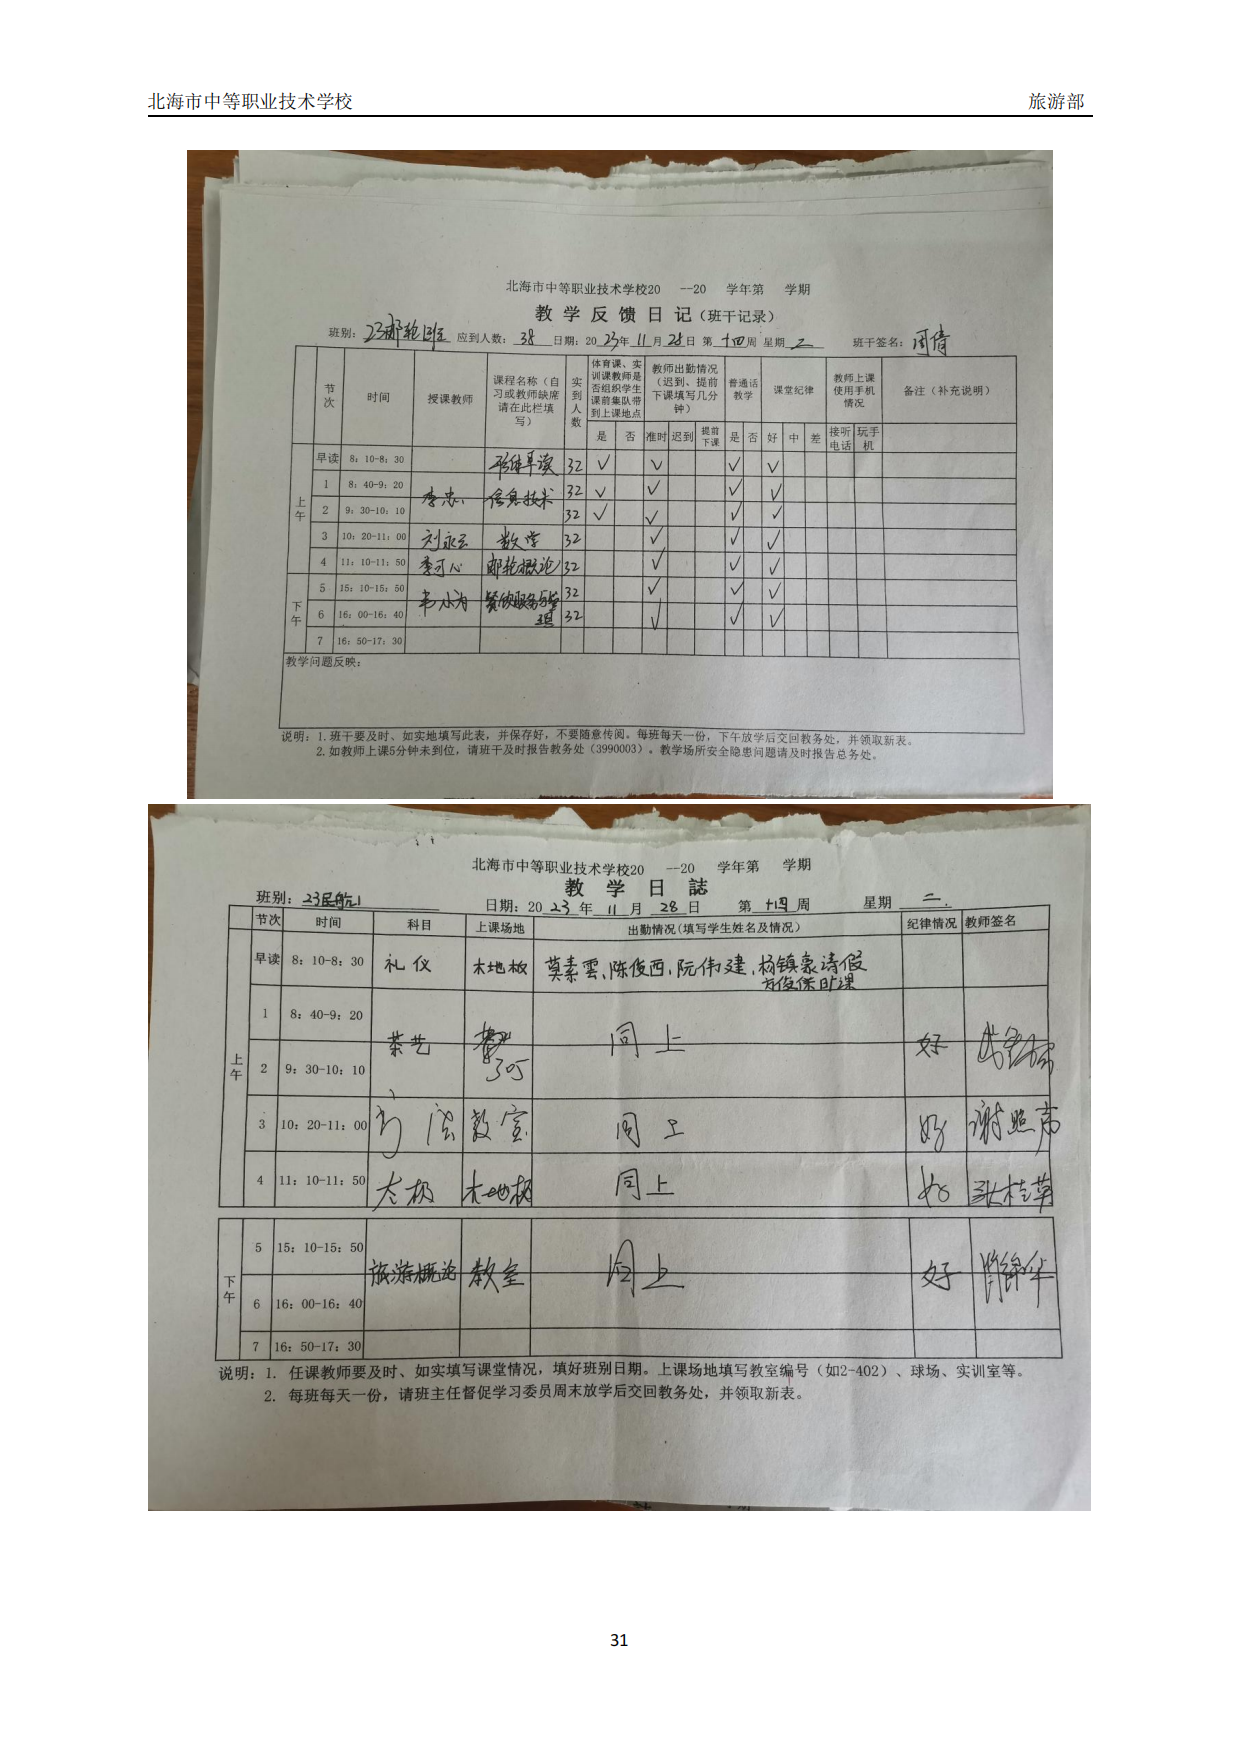 北海市中等职业技术学校 旅游部
北海市中等职业技术学校20 --20 学年第 学期
教 学 反 馈 日 记（班干记录）
班别：23邮轮班 应到人数：38 日期：2023年11月28日 第十四周 星期二 班干签名：周倩
节次 时间 授课教师 课程名称（自习或教师缺席请在此栏填写） 实到人数 体育课、实训课教师是否组织学生课前集队带到上课地点 教师出勤情况（迟到、提前下课填写几分钟） 普通话教学 课堂纪律 教师上课使用手机情况 备注（补充说明）
是 否 准时 迟到 提前下课 是 否 好 中 差 接听电话 玩手机
上午
早读 8：10-8：30 形体早读 32 ✓ ✓ ✓ ✓
1 8：40-9：20 李忠 信息技术 32 ✓ ✓ ✓ ✓
2 9：30-10：10 32 ✓ ✓ ✓ ✓
3 10：20-11：00 刘永 数学 32 ✓ ✓ ✓
4 11：10-11：50 李可心 邮轮概论 32 ✓ ✓ ✓
下午
5 15：10-15：50 韦小为 餐饮服务与管理 32 ✓ ✓ ✓
6 16：00-16：40 32 ✓ ✓ ✓
7 16：50-17：30
教学问题反映：
说明：1.班干要及时、如实地填写此表，并保存好，不要随意传阅。每班每天一份，下午放学后交回教务处，并领取新表。
2.如教师上课5分钟未到位，请班干及时报告教务处（3990003）。教学场所安全隐患问题请及时报告总务处。
北海市中等职业技术学校20 --20 学年第 学期
教 学 日 誌
班别：23民航1 日期：2023年11月28日 第十四周 星期二.
节次 时间 科目 上课场地 出勤情况（填写学生姓名及情况） 纪律情况 教师签名
上午
早读 8：10-8：30 礼仪 木地板 莫素雲、陈俊西，阮伟建，杨镇豪请假
方俊保旷课
1 8：40-9：20 茶艺 305 同上 好
2 9：30-10：10
3 10：20-11：00 教室 同上 好 谢照
4 11：10-11：50 太极 木地板 同上 好 张桂萍
下午
5 15：10-15：50 旅游概论 教室 同上 好
6 16：00-16：40
7 16：50-17：30
说明：1. 任课教师要及时、如实填写课堂情况，填好班别日期。上课场地填写教室编号（如2-402）、球场、实训室等。
2. 每班每天一份，请班主任督促学习委员周末放学后交回教务处，并领取新表。
31